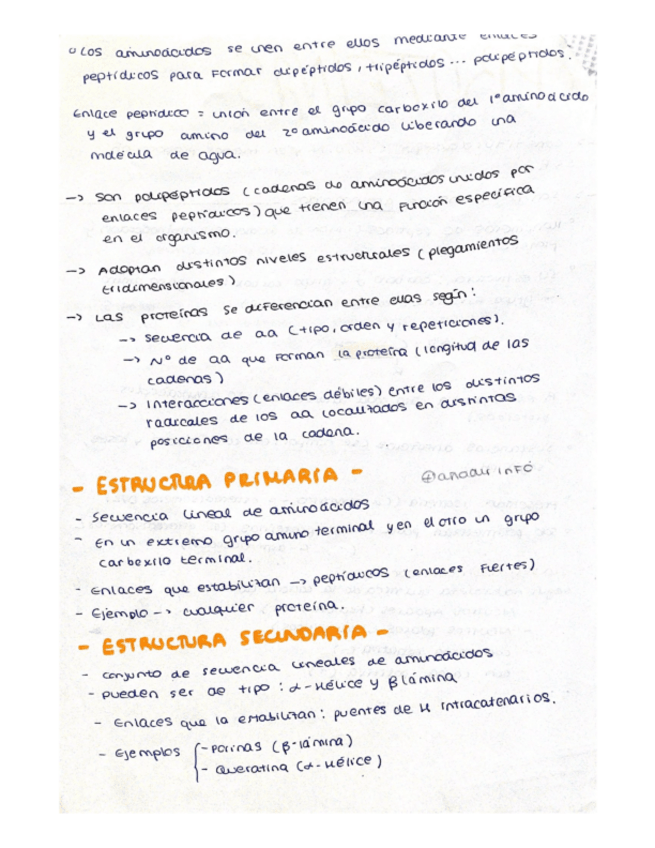 Los aminoácidos se unen entre ellos mediante enlaces
peptídicos para formar dipéptidos, tripéptidos... polipéptidos.
Enlace peptídico = unión entre el grupo carboxilo del 1º aminoácido
y el grupo amino del 2º aminoácido liberando una
molécula de agua.
-> Son polipéptidos (cadenas de aminoácidos unidos por
enlaces peptídicos) que tienen una función específica
en el organismo.
-> Adoptan distintos niveles estructurales (plegamientos
tridimensionales)
-> Las proteínas se diferencian entre ellas según:
-> Secuencia de aa (tipo, orden y repeticiones).
-> Nº de aa que forman la proteína (longitud de las
cadenas)
-> Interacciones (enlaces débiles) entre los distintos
radicales de los aa localizados en distintas
posiciones de la cadena.
- ESTRUCTURA PRIMARIA -
- Secuencia lineal de aminoácidos
- En un extremo grupo amino terminal y en el otro un grupo
carboxilo terminal.
- Enlaces que estabilizan -> peptídicos (enlaces fuertes)
- Ejemplo -> cualquier proteína.
- ESTRUCTURA SECUNDARIA -
- conjunto de secuencia lineales de aminoácidos
- pueden ser de tipo: α-Hélice y β lámina
- Enlaces que la estabilizan: puentes de H intracatenarios.
- Ejemplos
- Porinas (β-lámina)
- Queratina (α-Hélice)